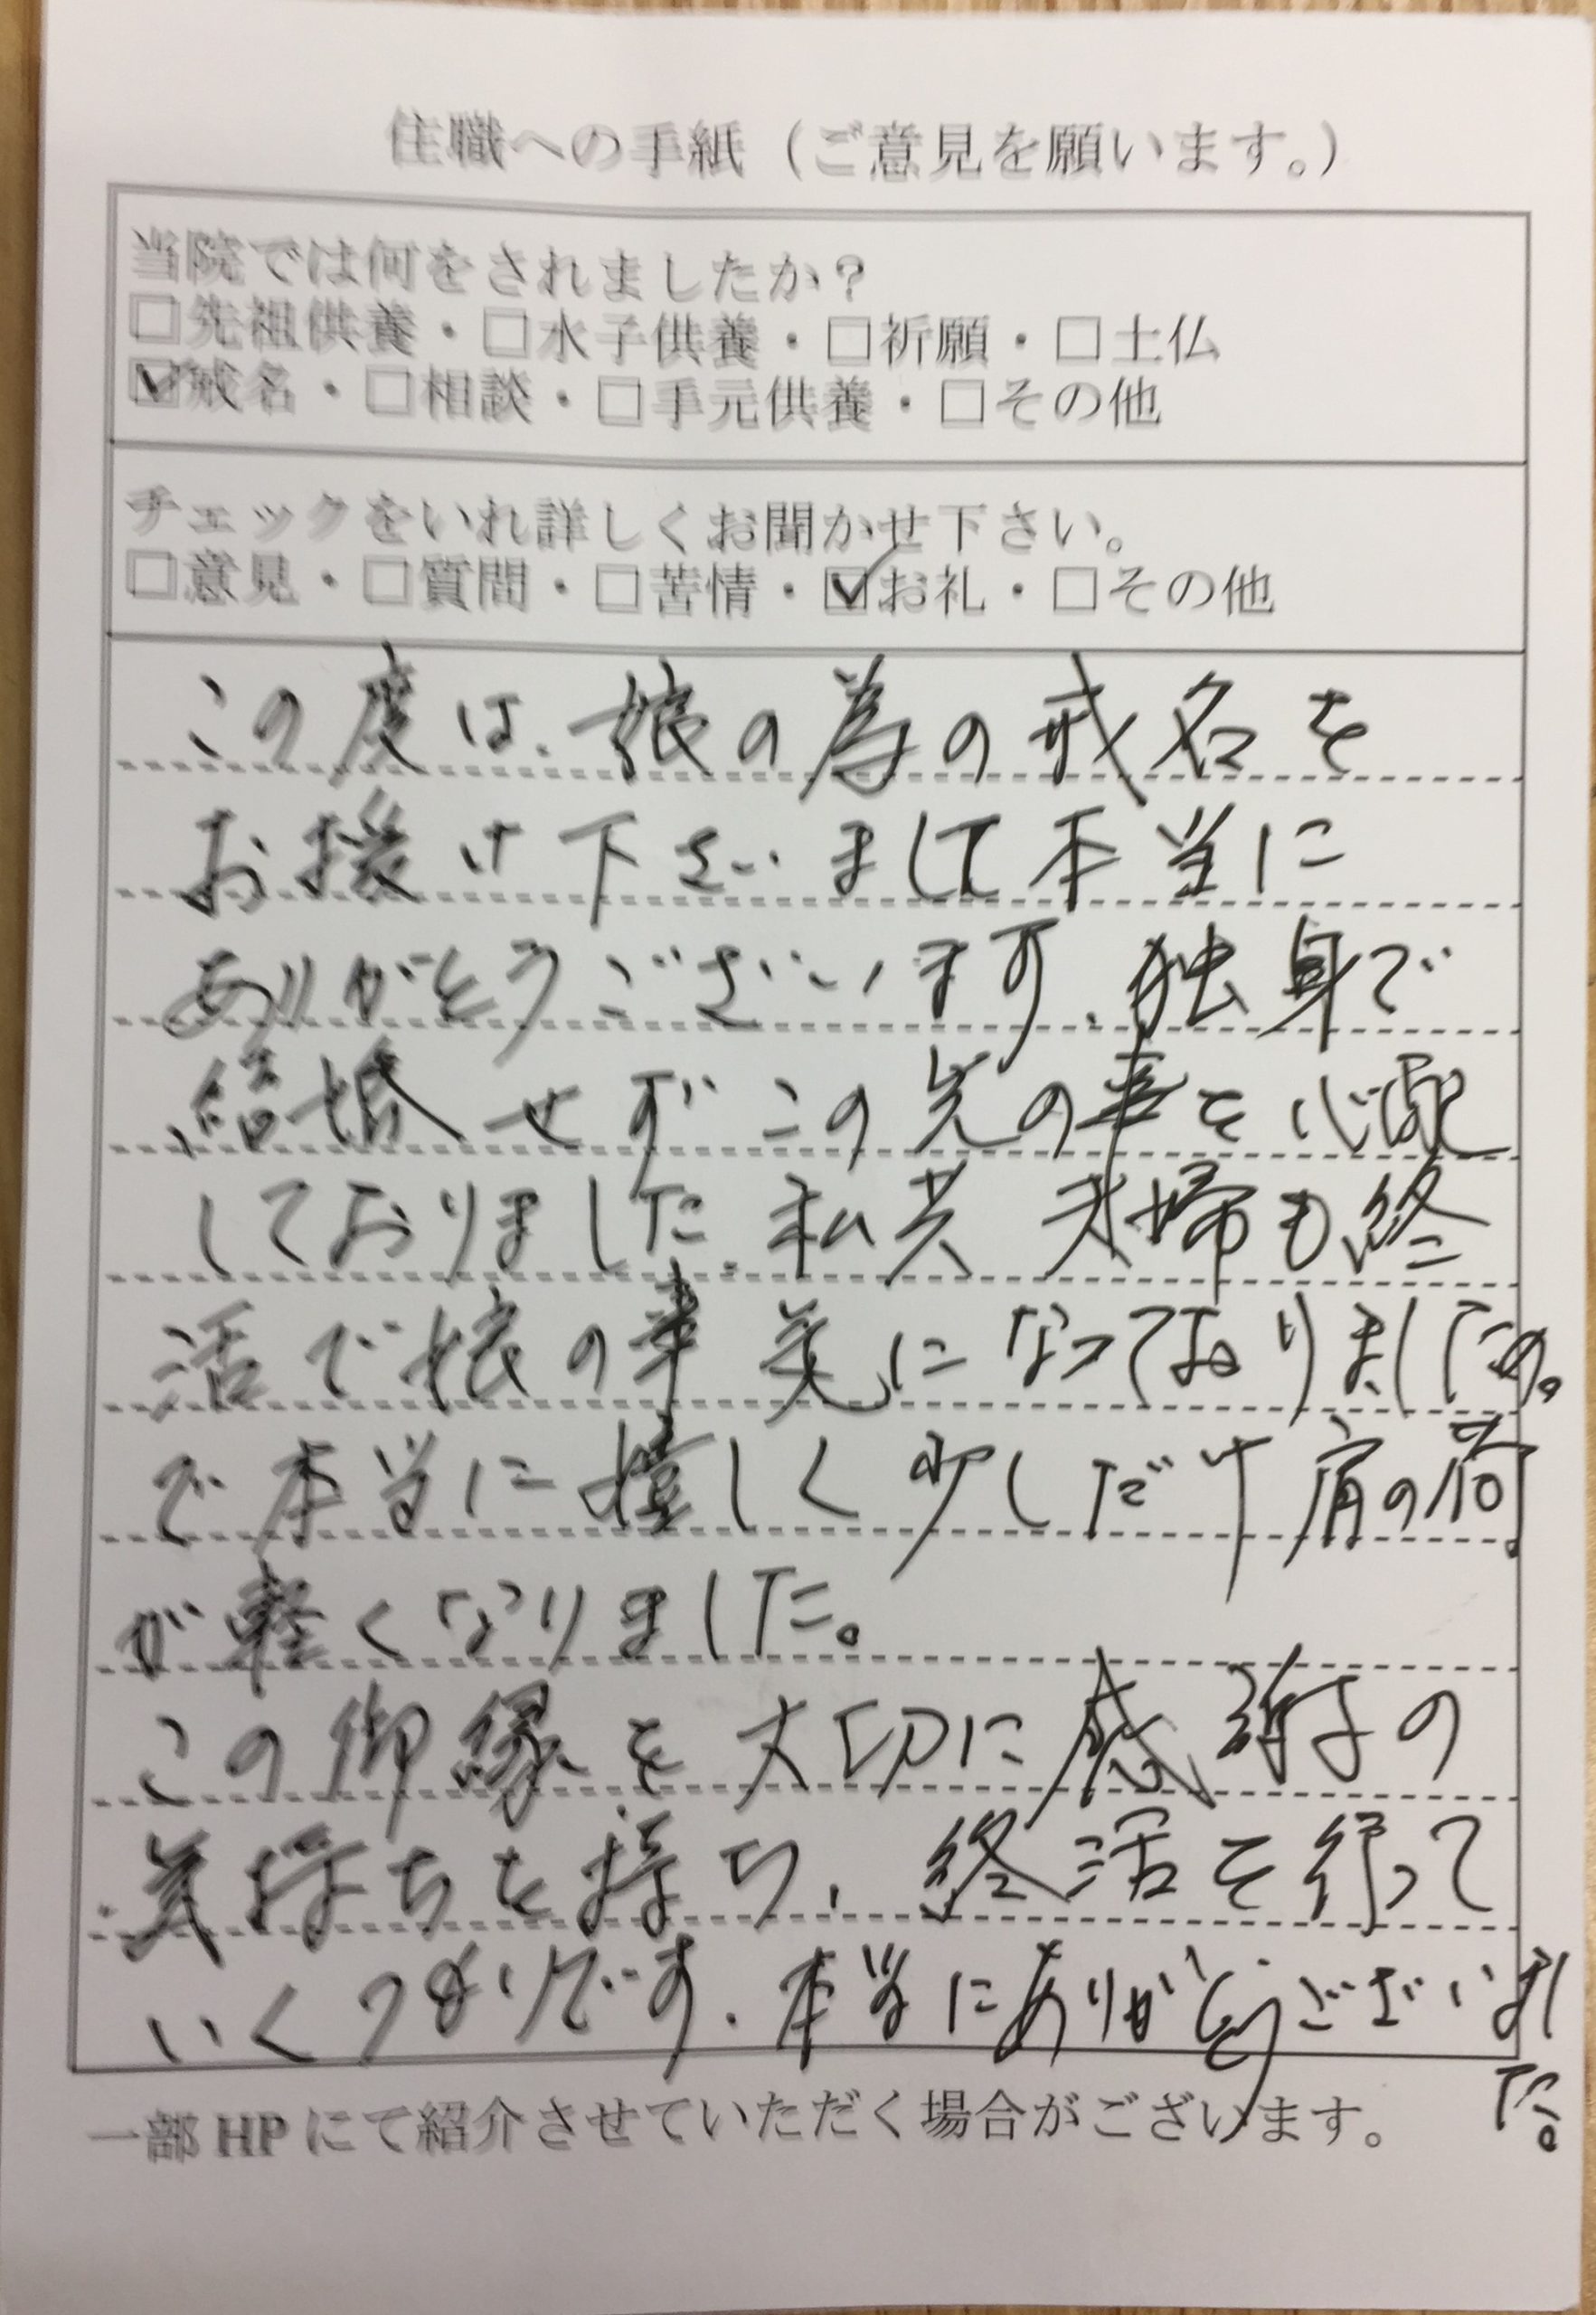 住職への手紙（ご意見を願います。）
当院では何をされましたか？
□先祖供養・□水子供養・□祈願・□土仏
☑戒名・□相談・□手元供養・□その他
チェックをいれ詳しくお聞かせ下さい。
□意見・□質問・□苦情・☑お礼・□その他
この度は、娘の為の戒名を
お授け下さいまして本当に
ありがとうございます、独身で
結婚せずこの先の事を心配
しておりました、私共夫婦も終
活で娘の事気になっておりましたの。
で本当に嬉しく少しだけ肩の荷
が軽くなりました。
この御縁を大切に感謝の
気持ちを持ち、終活を行って
いくつもりです、本当にありがとうございまし
た。
一部HPにて紹介させていただく場合がございます。